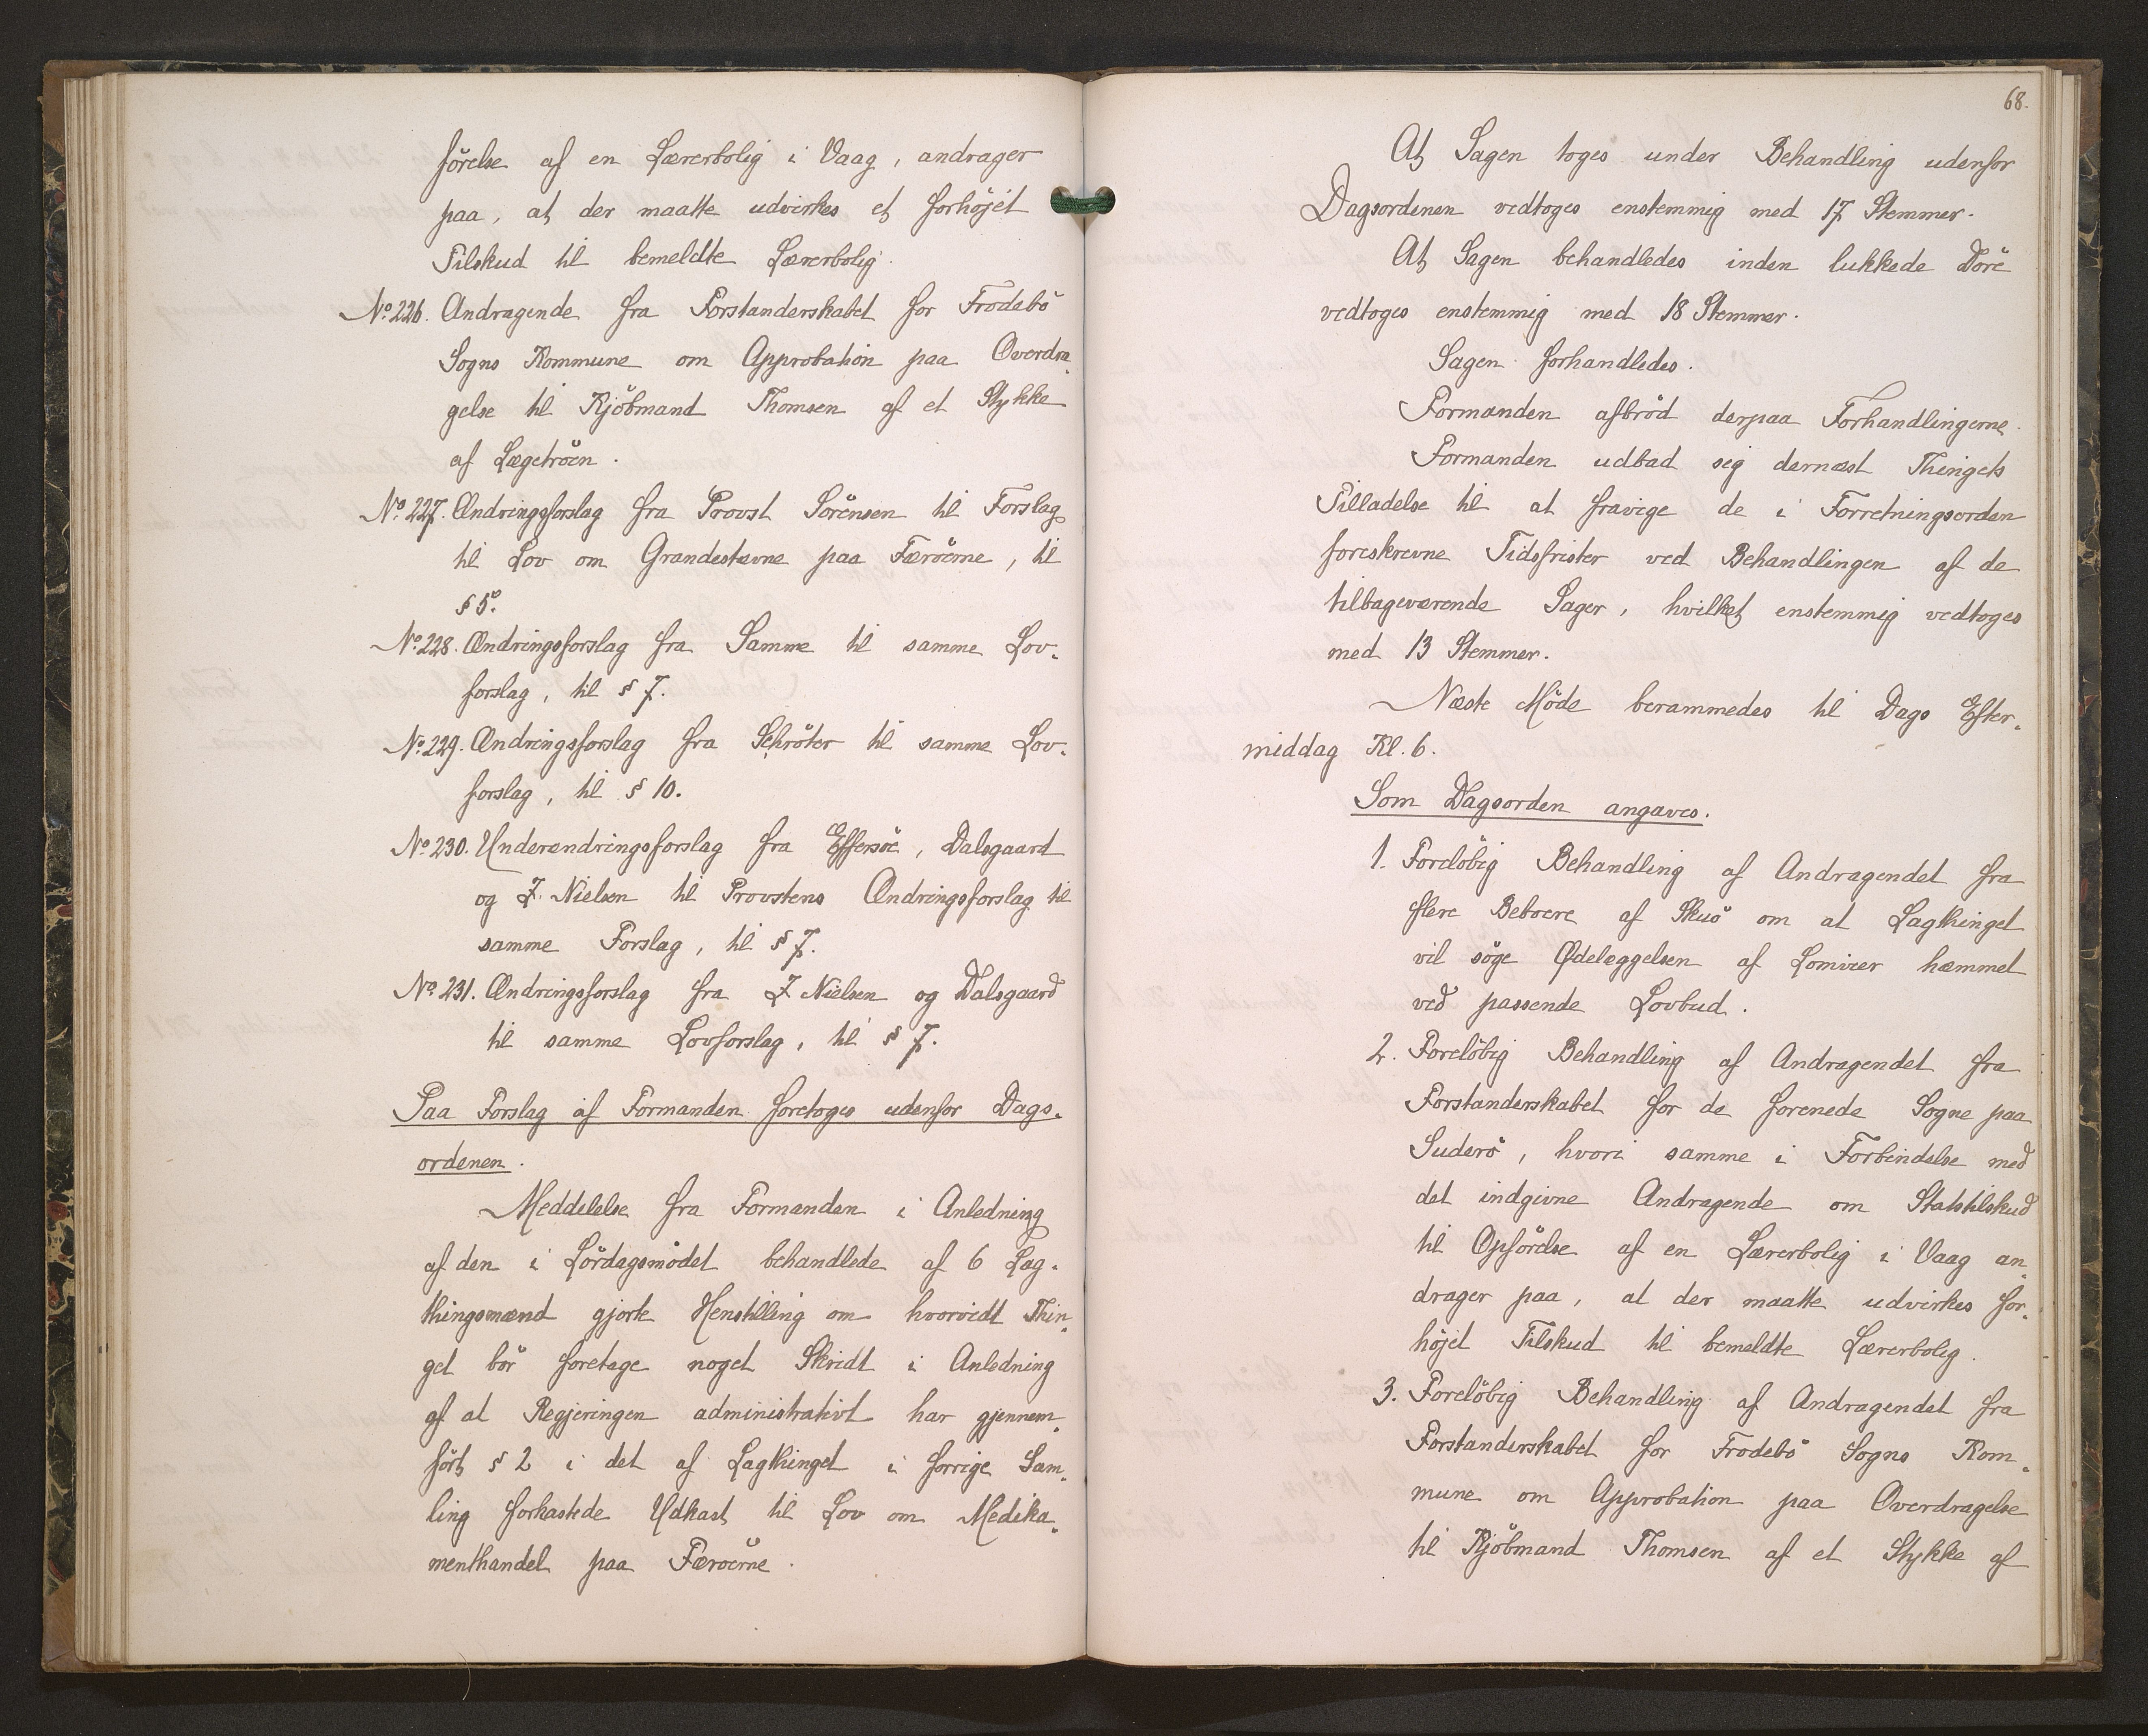 förelse af en Lærerbolig i Vaag, andrager
paa, at der maatte udvirkes et forhöjet
Tilskud til bemeldte Lærerbolig.
No. 226. Andragende fra Forstanderskabet for Frodebö
Sogns Kommune om Approbation paa Overdra„
gelse til Kjöbmand Thomsen af et Stykke
af Lægetröen.
No. 227. Ændringsforslag fra Provst Sörensen til Forslag
til Lov om Grandestævne paa Færöerne, til
§ 5.
No. 228. Ændringsforslag fra Samme til samme Lov„
forslag, til § 7.
No. 229. Ændringsforslag fra Schröter til samme Lov„
forslag, til § 10.
No. 230. Underændringsforslag fra Effersöe, Dalsgaard
og J. Nielsen til Provstens Ændringsforslag til
samme Forslag, til § 7.
No. 231. Ændringsforslag fra J. Nielsen og Dalsgaard
til samme Lovforslag, til § 7.
Paa Forslag af Formanden foretoges udenfor Dags„
ordenen.
Meddelelse fra Formanden i Anledning
af den i Lördagsmödet behandlede af 6 Lag„
thingsmænd gjorte Henstilling om hvorvidt Thin„
get bör foretage noget Skridt i Anledning
af at Regjeringen administrativt har gjennem„
fört § 2 i det af Lagthinget i forrige Sam„
ling forkastede Udkast til Lov om Medika„
menthandel paa Færöerne.
68.
At Sagen toges under Behandling udenfor
Dagsordenen vedtoges enstemmig med 17 Stemmer.
At Sagen behandledes inden lukkede Döre
vedtoges enstemmig med 18 Stemmer.
Sagen forhandledes.
Formanden afbröd derpaa Forhandlingerne.
Formanden udbad sig dernæst Thingets
Tilladelse til at fravige de i Forretningsorden
foreskrevne Tidsfrister ved Behandlingen af de
tilbageværende Sager, hvilket enstemmig vedtoges
med 13 Stemmer.
Næste Möde berammedes til Dags Efter„
middag Kl. 6.
Som Dagsorden angaves.
1. Foreløbig Behandling af Andragendet fra
flere Beboere af Skuö om at Lagthinget
vil söge Ødelæggelsen af Lomvier hæmmet
ved passende Lovbud.
2. Forelöbig Behandling af Andragendet fra
Forstanderskabet for de forenede Sogne paa
Suderö, hvori samme i Forbindelse med
det indgivne Andragende om Statstilskud
til Opförelse af en Lærerbolig i Vaag an„
drager paa, at der maatte udvirkes for„
höjet Tilskud til bemeldte Lærerbolig.
3. Forelöbig Behandling af Andragendet fra
Forstanderskabet for Frodebö Sogns Kom„
mune om Approbation paa Overdragelse
til Kjöbmand Thomsen af et Stykke af